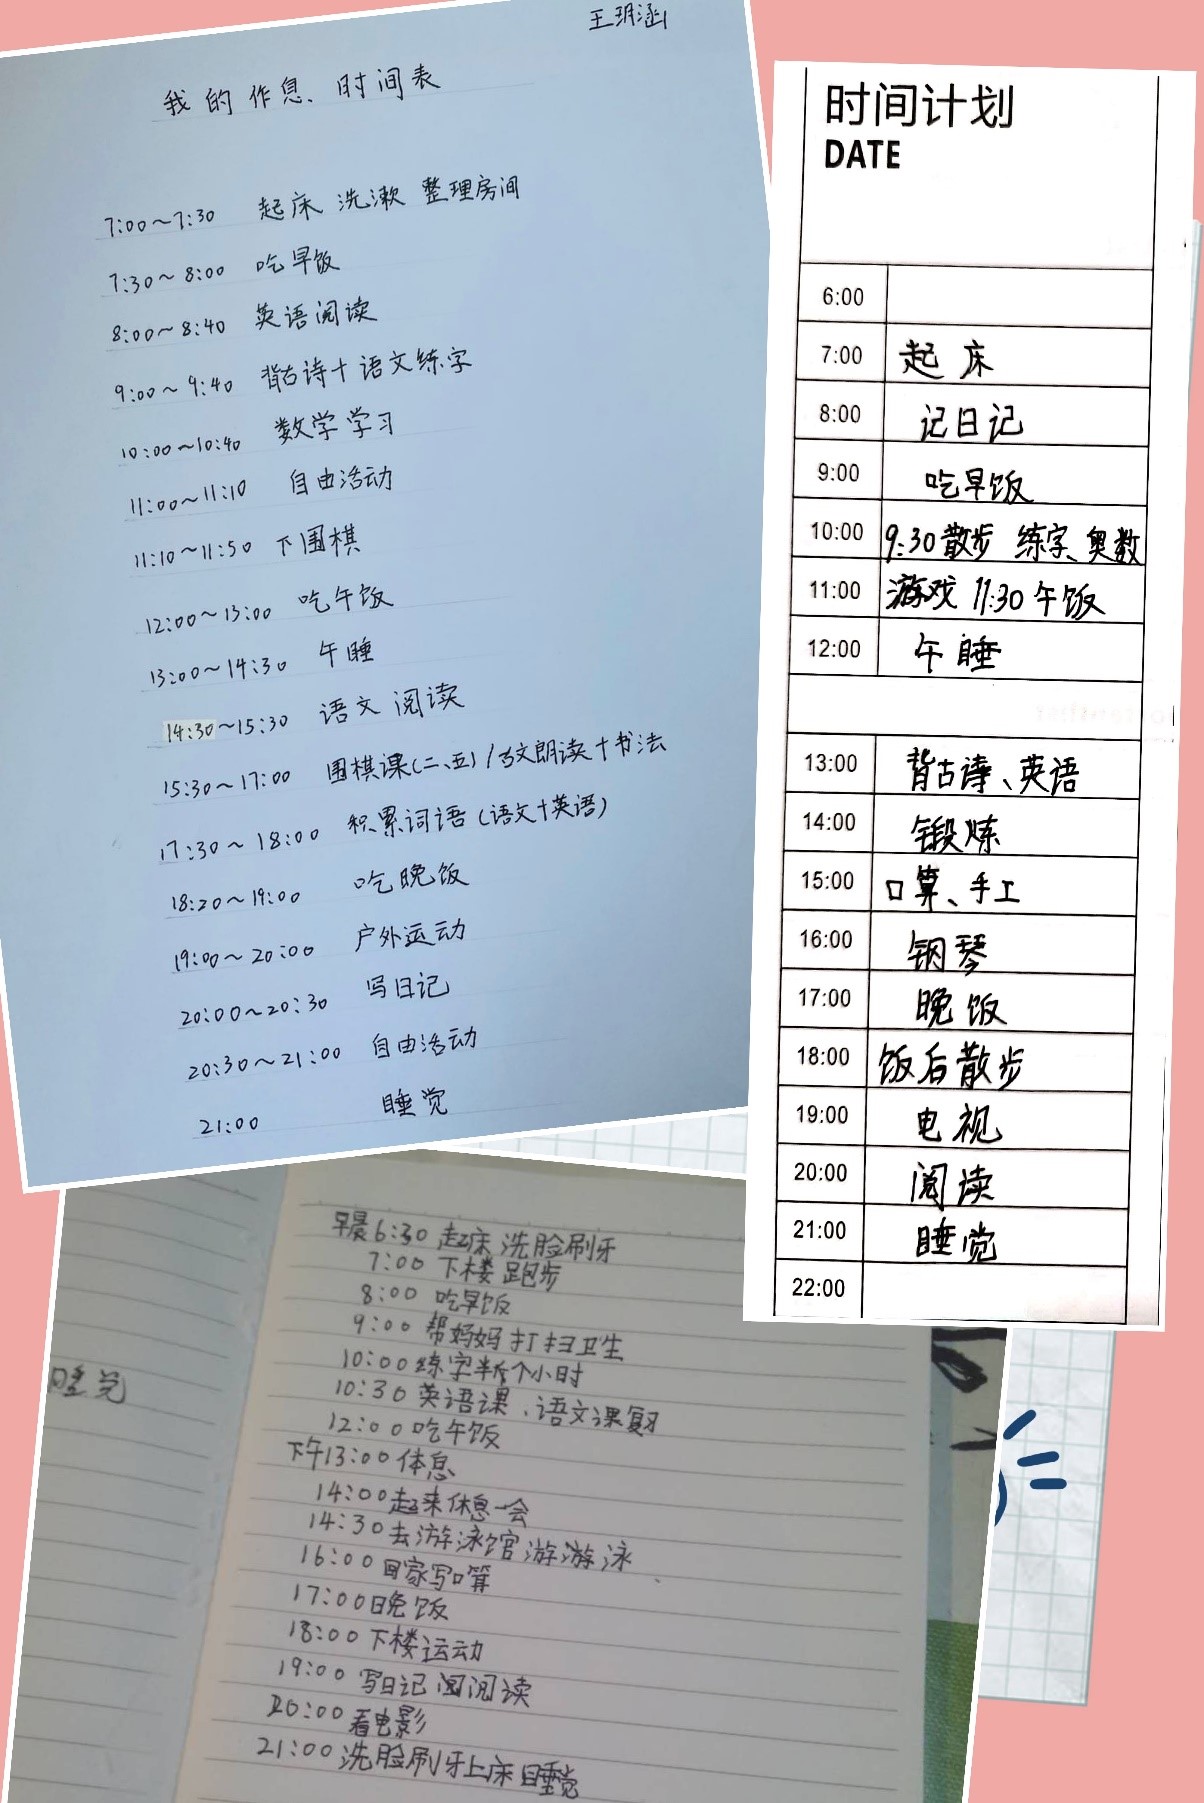 王玥涵
我的作息时间表
7:00~7:30 起床 洗漱 整理房间
7:30~8:00 吃早饭
8:00~8:40 英语阅读
9:00~9:40 背古诗+语文练字
10:00~10:40 数学学习
11:00~11:10 自由活动
11:10~11:50 下围棋
12:00~13:00 吃午饭
13:00~14:30 午睡
14:30~15:30 语文阅读
15:30~17:00 围棋课(二、五)/文朗读+书法
17:30~18:00 积累词语(语文+英语)
18:20~19:00 吃晚饭
19:00~20:00 户外运动
20:00~20:30 写日记
20:30~21:00 自由活动
21:00 睡觉
时间计划
DATE
6:00
7:00 起床
8:00 记日记
9:00 吃早饭
10:00 9:30散步 练字、奥数
11:00 游戏 11:30午饭
12:00 午睡
13:00 背古诗、英语
14:00 锻炼
15:00 口算、手工
16:00 钢琴
17:00 晚饭
18:00 饭后散步
19:00 电视
20:00 阅读
21:00 睡觉
22:00
睡觉
早晨6:30 起床 洗脸刷牙
7:00 下楼跑步
8:00 吃早饭
9:00 帮妈妈打扫卫生
10:00 练字半个小时
10:30 英语课、语文课复习
12:00 吃午饭
下午13:00 体息
14:00 起来休息一会
14:30 去游泳馆游游泳
16:00 回家写口算
17:00 晚饭
18:00 下楼运动
19:00 写日记 阅读
20:00 看电影
21:00 洗脸刷牙上床睡觉